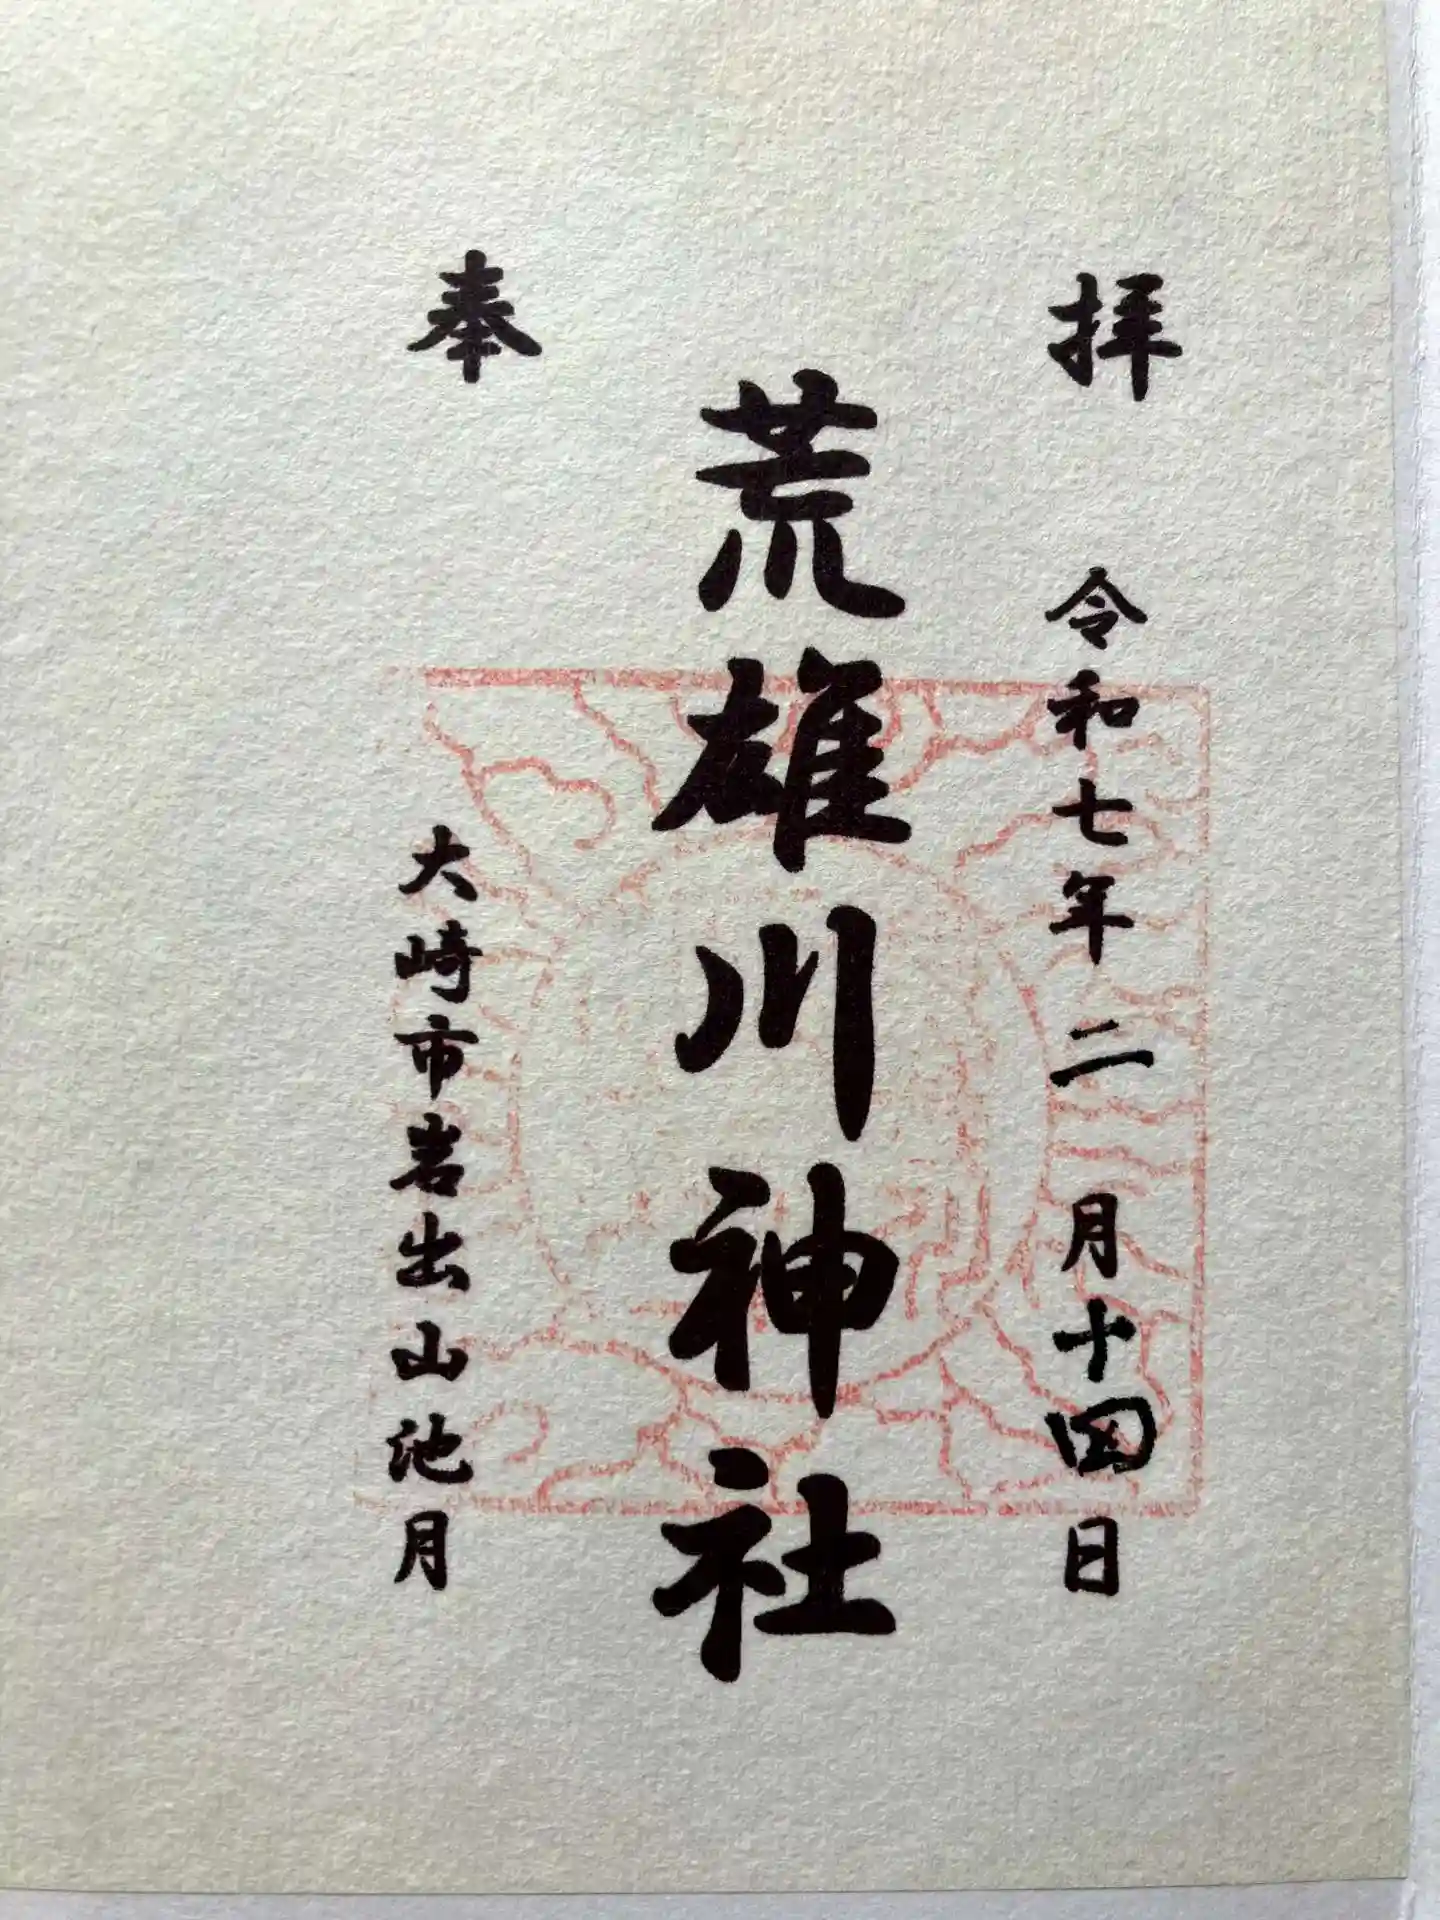 奉 拝
令和七年 二 月十四日
荒雄川神社
大崎市岩出山池月